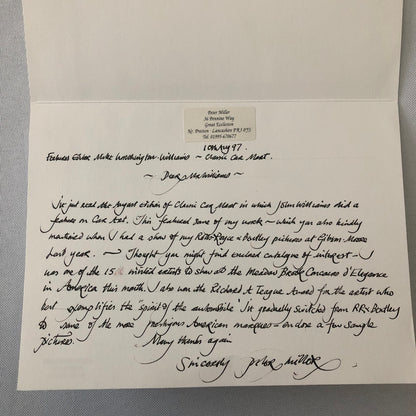 Peter Miller
36 Pennine Way
Great Eccleston
Nr. Preston - Lancashire PR3 0YS
Tel. 01995 670677
10th Aug 97.
Features Editor Mike Worthington-Williams ~ Classic Car Mart.
~ Dear Mr Williams ~
I've just read the August edition of Classic Car Mart in which John Williams did a
feature on Car Art. This featured some of my work ~ which you also kindly
mentioned when I had a show of my Rolls-Royce & Bentley pictures at
last year. ~ Thought you might find enclosed catalogue of interest ~ I
was one of the 15 invited artists to show at the Meadow Brook Concours d'Elegance
in America this month. I also won the Richard A Teague Award for the artist who
best exemplifies the "spirit of the automobile" I've gradually switched from RR & Bentley
to some of the more prestigious American marques ~ enclose a few sample
pictures. Many thanks again
Sincerely Peter Miller